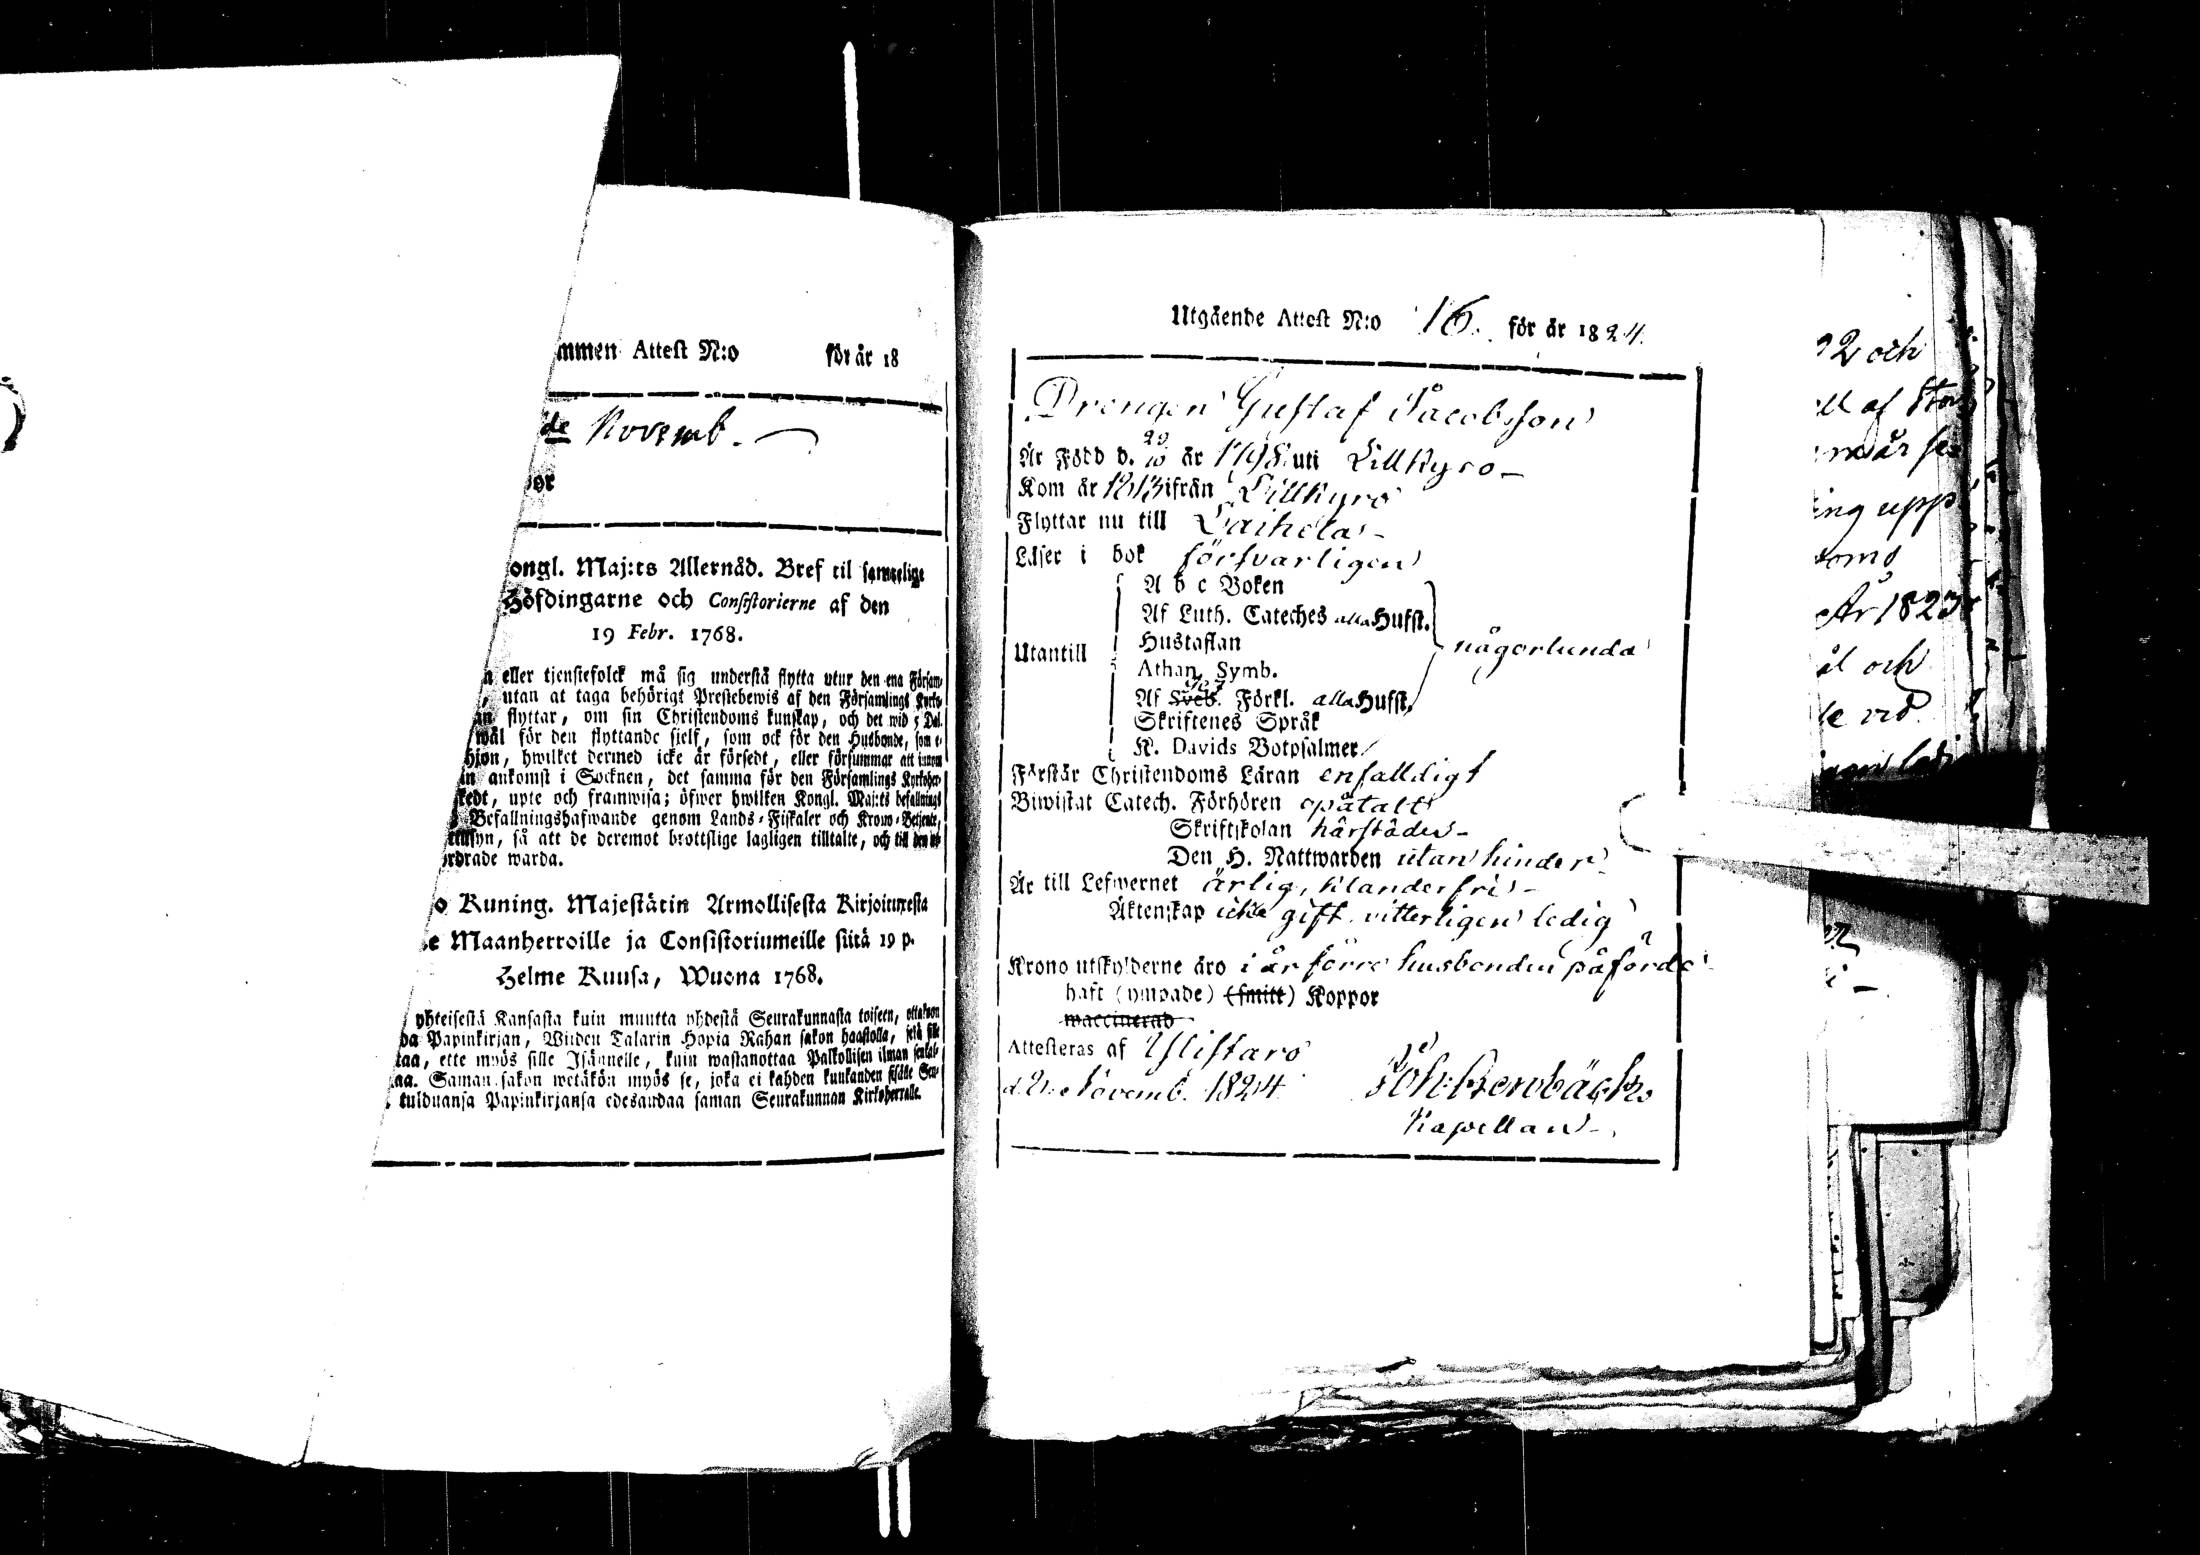 mmen Attest N:o för år 18
de Novemb.
por
ongl. Maj:ts Allernåd. Bref til samtelige
Höfdingarne och Consistorierne af den
19 Febr. 1768.
n eller tjenstefolck må sig understå flytta utur den ena Försam-
, utan at taga behörigt Prestebewis af den Församlings Kyrko-
an flyttar, om sin Christendoms kunskap, och det wid 5 Dal.
wäl för den flyttande sielf, som ock för den Husbonde, som e-
hjon, hwilket dermed icke är försedt, eller försummar att innom
in ankomst i Socknen, det samma för den Församlings Kyrkoher-
kedt, upte och framwisa; öfwer hwilken Kongl. Maj:ts befallnings
Befallningshafwande genom Lands-Fiskaler och Krono-Betjente,
ttilsyn, så att de deremot brottslige lagligen tilltalte, och till den
ordrade warda.
o Kuning. Majestätin Armollisesta Kirjoituxesta
e Maanherroille ja Consistoriumeille siitä 19 p.
Helme Kuusa, Wuona 1768.
yhteisestä Kansasta kuin muutta yhdestä Seurakunnasta toiseen, ottakoon
da Papinkirjan, Wiiden Talarin Hopia Rahan sakon haastolla, setä sille
taa, ette myös sille Isännelle, kuin wastanottaa Palkollisen ilman senkal-
aa. Saman sakon wetäkön myös se, joka ei kahden kuukanden sisälle Seu-
tulduansa Papinkirjansa edesandaa saman Seurakunnan Kirkoherralle.
Utgående Attest N:o 16. för år 1824.
Drengen Gustaf Jacobsson
Är Född d. 29/10 år 1798 uti Lillkyro
Kom år 1813 ifrån Lillkyro
Flyttar nu till Laihela
Läser i bok försvarligen
A b c Boken
Af Luth. Cateches alla Hufst.
Hustaflan
Utantill någorlunda
Athan. Symb.
Af Sveb. Förkl. alla Hufst.
Skriftenes Språk
K. Davids Botpsalmer
Förstår Christendoms Läran enfalldigt
Biwistat Catech. Förhören opåtalt
Skriftskolan härstädes
Den H. Nattwarden utan hinder
Är till Lefwernet ärlig, klanderfri
Äktenskap icke gift vitterligen ledig
Krono utskylderne äro i år förre husbonden påförde
haft (ympade) (smitt) Koppor
waccinerad
Attesteras af Ylistaro
d. 2. Novemb. 1824. Joh:
Kapellan
92 och
ll af
ing upp
doms
År 1823
ål och
te vid